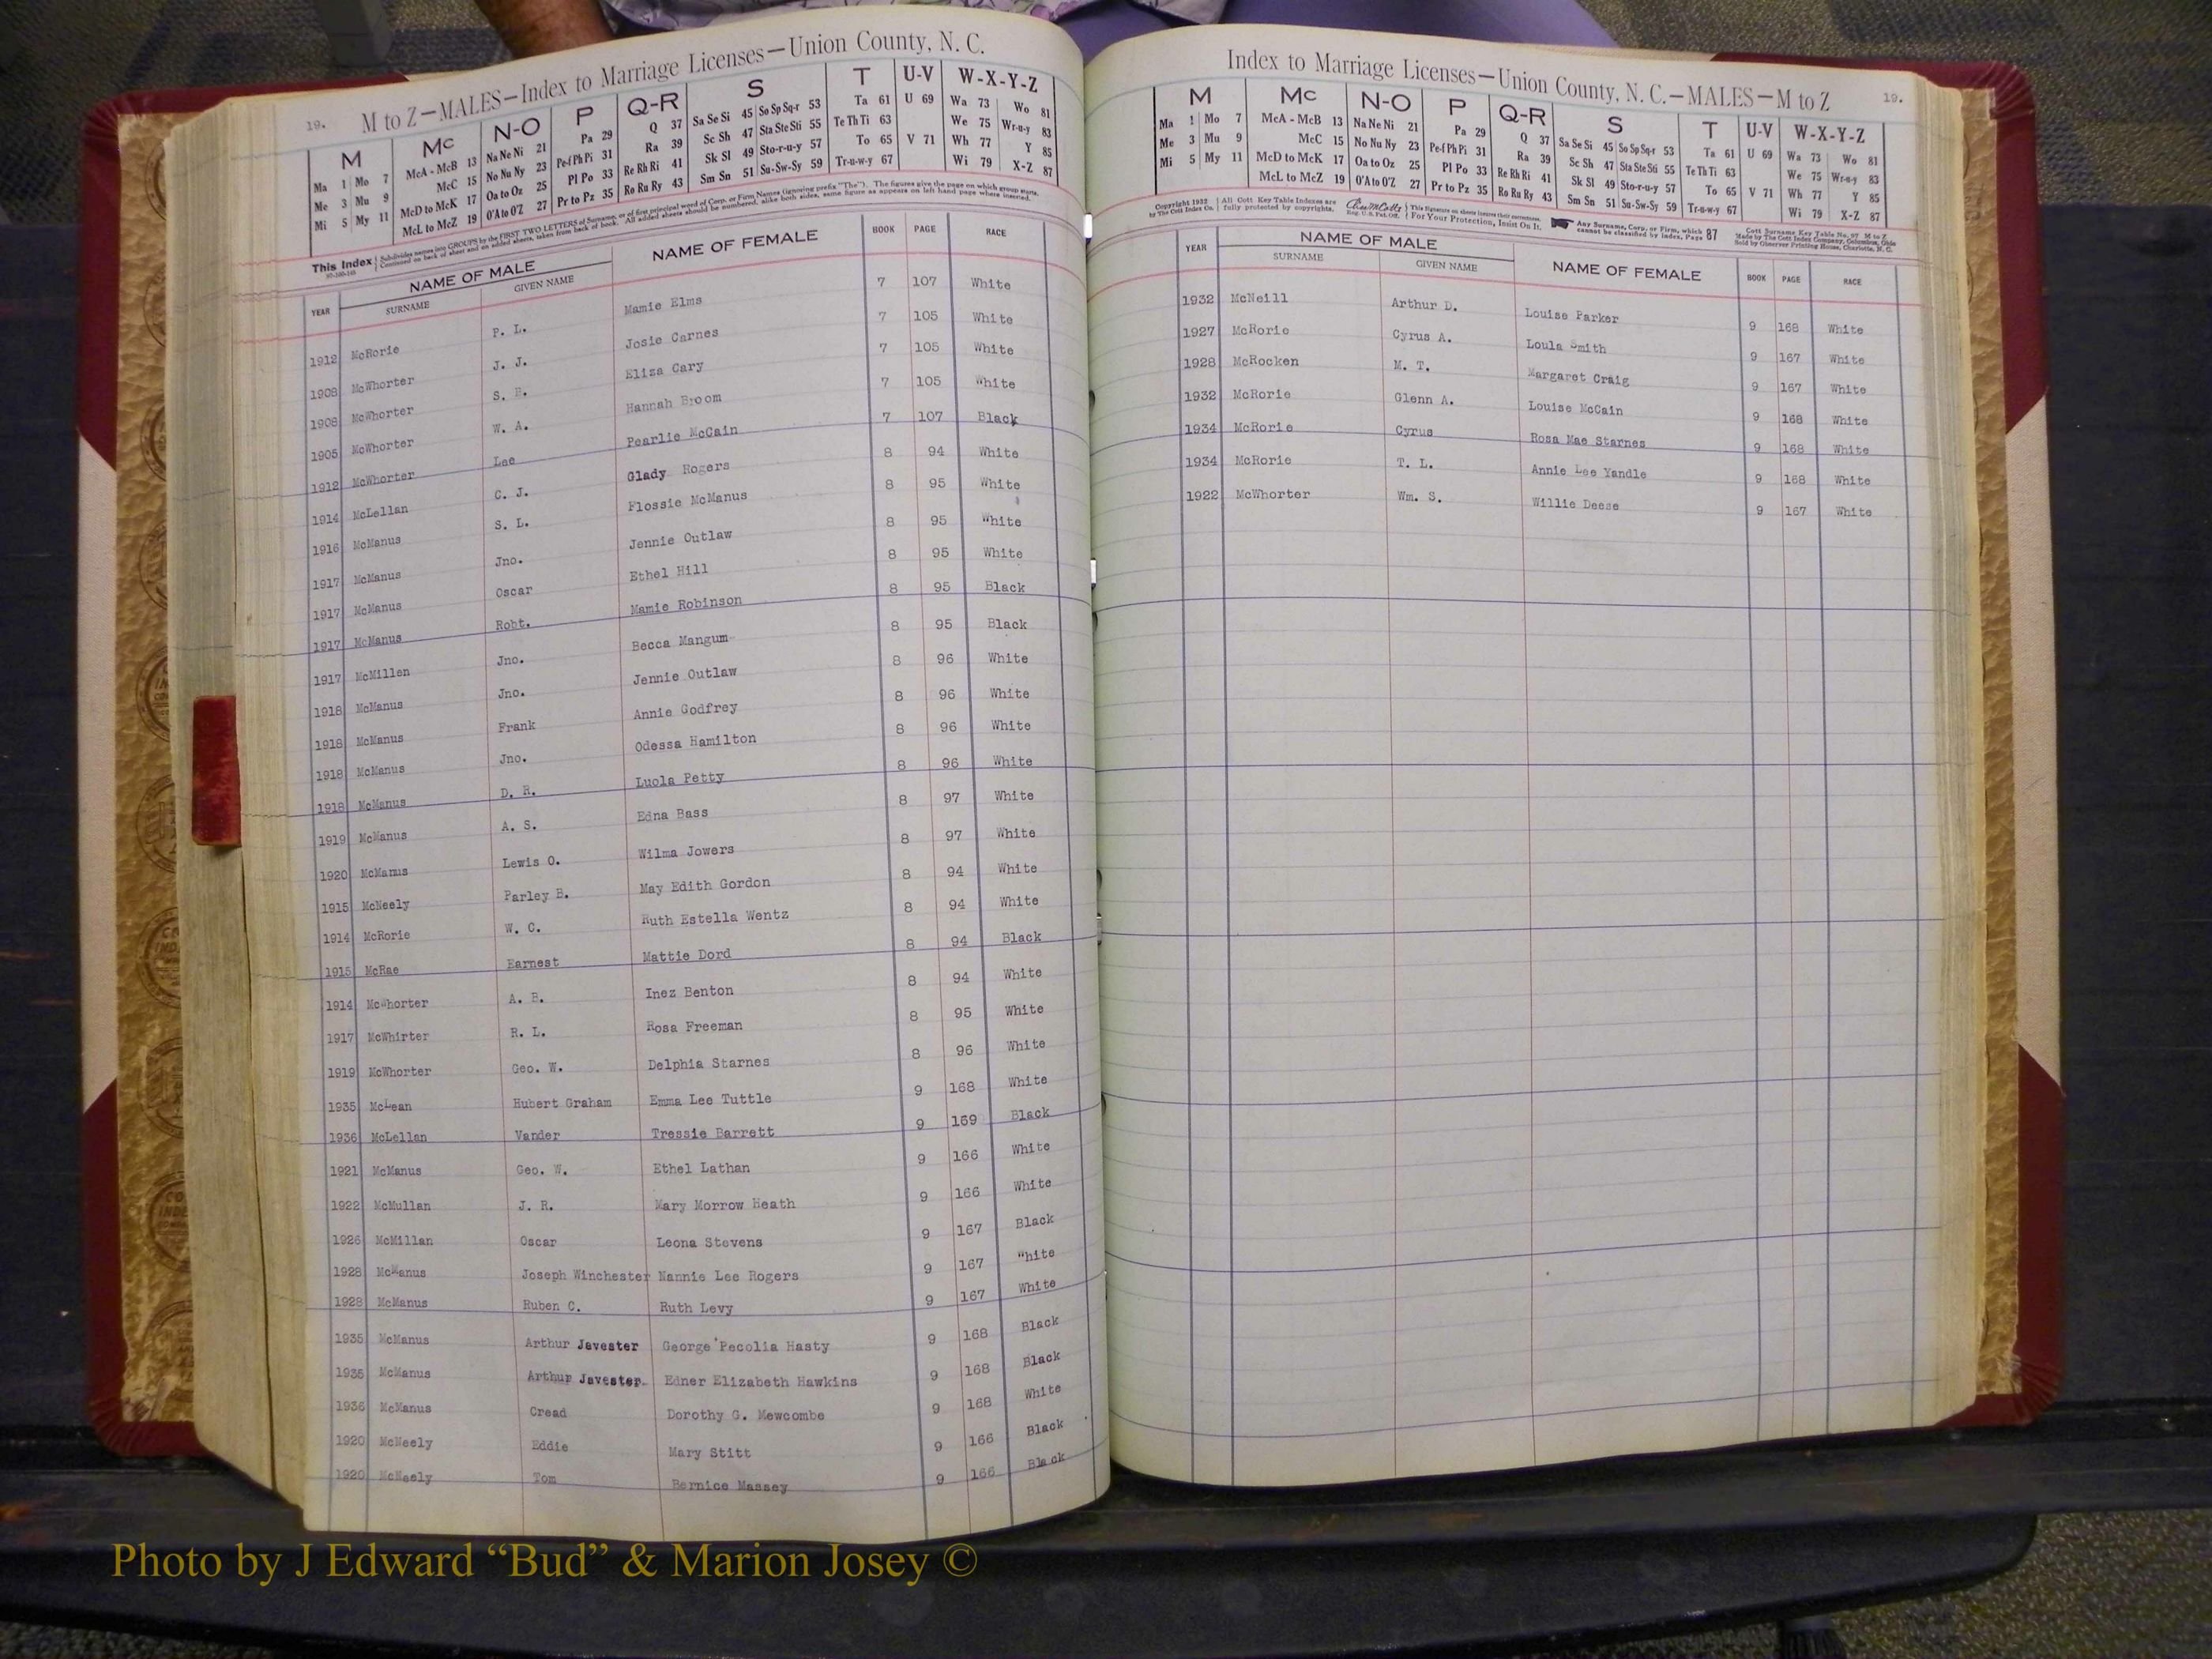 19. M to Z—MALES—Index to Marriage Licenses—Union County, N. C.
M Mc N-O P Q-R S T U-V W-X-Y-Z
Ma 1 Mo 7 McA - McB 13 Na Ne Ni 21 Pa 29 Q 37 Sa Se Si 45 So Sp Sq-r 53 Ta 61 U 69 Wa 73 Wo 81
Me 3 Mu 9 McC 15 No Nu Ny 23 Pe-f Ph Pi 31 Ra 39 Sc Sh 47 Sta Ste Sti 55 Te Th Ti 63 We 75 Wr-u-y 83
Mi 5 My 11 McD to McK 17 Oa to Oz 25 Pl Po 33 Re Rh Ri 41 Sk Sl 49 Sto-r-u-y 57 To 65 V 71 Wh 77 Y 85
McL to McZ 19 O'A to O'Z 27 Pr to Pz 35 Ro Ru Ry 43 Sm Sn 51 Su-Sw-Sy 59 Tr-u-w-y 67 Wi 79 X-Z 87
This Index Subdivides names into GROUPS by the FIRST TWO LETTERS of Surname, or of first principal word of Corp. or Firm Names (ignoring prefix "The"). The figures give the page on which group starts.
Continued on back of sheet and on added sheets, taken from back of book. All added sheets should be numbered, alike both sides, same figure as appears on left hand page where inserted.
YEAR NAME OF MALE NAME OF FEMALE BOOK PAGE RACE
SURNAME GIVEN NAME
1912 McRorie P. L. Mamie Elms 7 107 White
1908 McWhorter J. J. Josie Carnes 7 105 White
1908 McWhorter S. B. Eliza Cary 7 105 White
1905 McWhorter W. A. Hannah Broom 7 105 White
1912 McWhorter Lee Pearlie McCain 7 107 Black
1914 McLellan C. J. Glady Rogers 8 94 White
1916 McManus S. L. Flossie McManus 8 95 White
1917 McManus Jno. Jennie Outlaw 8 95 White
1917 McManus Oscar Ethel Hill 8 95 White
1917 McManus Robt. Mamie Robinson 8 95 Black
1917 McMillen Jno. Becca Mangum 8 95 Black
1918 McManus Jno. Jennie Outlaw 8 96 White
1918 McManus Frank Annie Godfrey 8 96 White
1918 McManus Jno. Odessa Hamilton 8 96 White
1918 McManus D. R. Luola Petty 8 96 White
1919 McManus A. S. Edna Bass 8 97 White
1920 McManus Lewis O. Wilma Jowers 8 97 White
1915 McNeely Parley B. May Edith Gordon 8 94 White
1914 McRorie W. C. Ruth Estella Wentz 8 94 White
1915 McRae Earnest Mattie Dord 8 94 Black
1914 McWhorter A. B. Inez Benton 8 94 White
1917 McWhirter R. L. Rosa Freeman 8 95 White
1919 McWhorter Geo. W. Delphia Starnes 8 96 White
1935 McLean Hubert Graham Emma Lee Tuttle 9 168 White
1936 McLellan Vander Tressie Barrett 9 169 Black
1921 McManus Geo. W. Ethel Lathan 9 166 White
1922 McMullan J. R. Mary Morrow Heath 9 166 White
1926 McMillan Oscar Leona Stevens 9 167 Black
1928 McManus Joseph Winchester Nannie Lee Rogers 9 167 White
1928 McManus Ruben C. Ruth Levy 9 167 White
1935 McManus Arthur Javester George Pecolia Hasty 9 168 Black
1935 McManus Arthur Javester Edner Elizabeth Hawkins 9 168 Black
1936 McManus Cread Dorothy G. Mewcombe 9 168 White
1920 McNeely Eddie Mary Stitt 9 166 Black
1920 McNeely Tom Bernice Massey 9 166 Black
Index to Marriage Licenses—Union County, N. C.—MALES—M to Z 19.
M Mc N-O P Q-R S T U-V W-X-Y-Z
Ma 1 Mo 7 McA - McB 13 Na Ne Ni 21 Pa 29 Q 37 Sa Se Si 45 So Sp Sq-r 53 Ta 61 U 69 Wa 73 Wo 81
Me 3 Mu 9 McC 15 No Nu Ny 23 Pe-f Ph Pi 31 Ra 39 Sc Sh 47 Sta Ste Sti 55 Te Th Ti 63 We 75 Wr-u-y 83
Mi 5 My 11 McD to McK 17 Oa to Oz 25 Pl Po 33 Re Rh Ri 41 Sk Sl 49 Sto-r-u-y 57 To 65 V 71 Wh 77 Y 85
McL to McZ 19 O'A to O'Z 27 Pr to Pz 35 Ro Ru Ry 43 Sm Sn 51 Su-Sw-Sy 59 Tr-u-w-y 67 Wi 79 X-Z 87
Copyright 1932 by The Cott Index Co. All Cott Key Table Indexes are fully protected by copyrights. For Your Protection, Insist On It. Any Surname, Corp. or Firm, which cannot be classified by Index, Page 87
Cott Surname Key Table No. 97 M to Z
Made by The Cott Index Company, Columbus, Ohio
Sold by Observer Printing House, Charlotte, N. C.
YEAR NAME OF MALE NAME OF FEMALE BOOK PAGE RACE
SURNAME GIVEN NAME
1932 McNeill Arthur D. Louise Parker 9 168 White
1927 McRorie Cyrus A. Loula Smith 9 167 White
1928 McRocken M. T. Margaret Craig 9 167 White
1932 McRorie Glenn A. Louise McCain 9 168 White
1934 McRorie Cyrus Rosa Mae Starnes 9 168 White
1934 McRorie T. L. Annie Lee Yandle 9 168 White
1922 McWhorter Wm. S. Willie Deese 9 167 White
Photo by J Edward “Bud” & Marion Josey ©